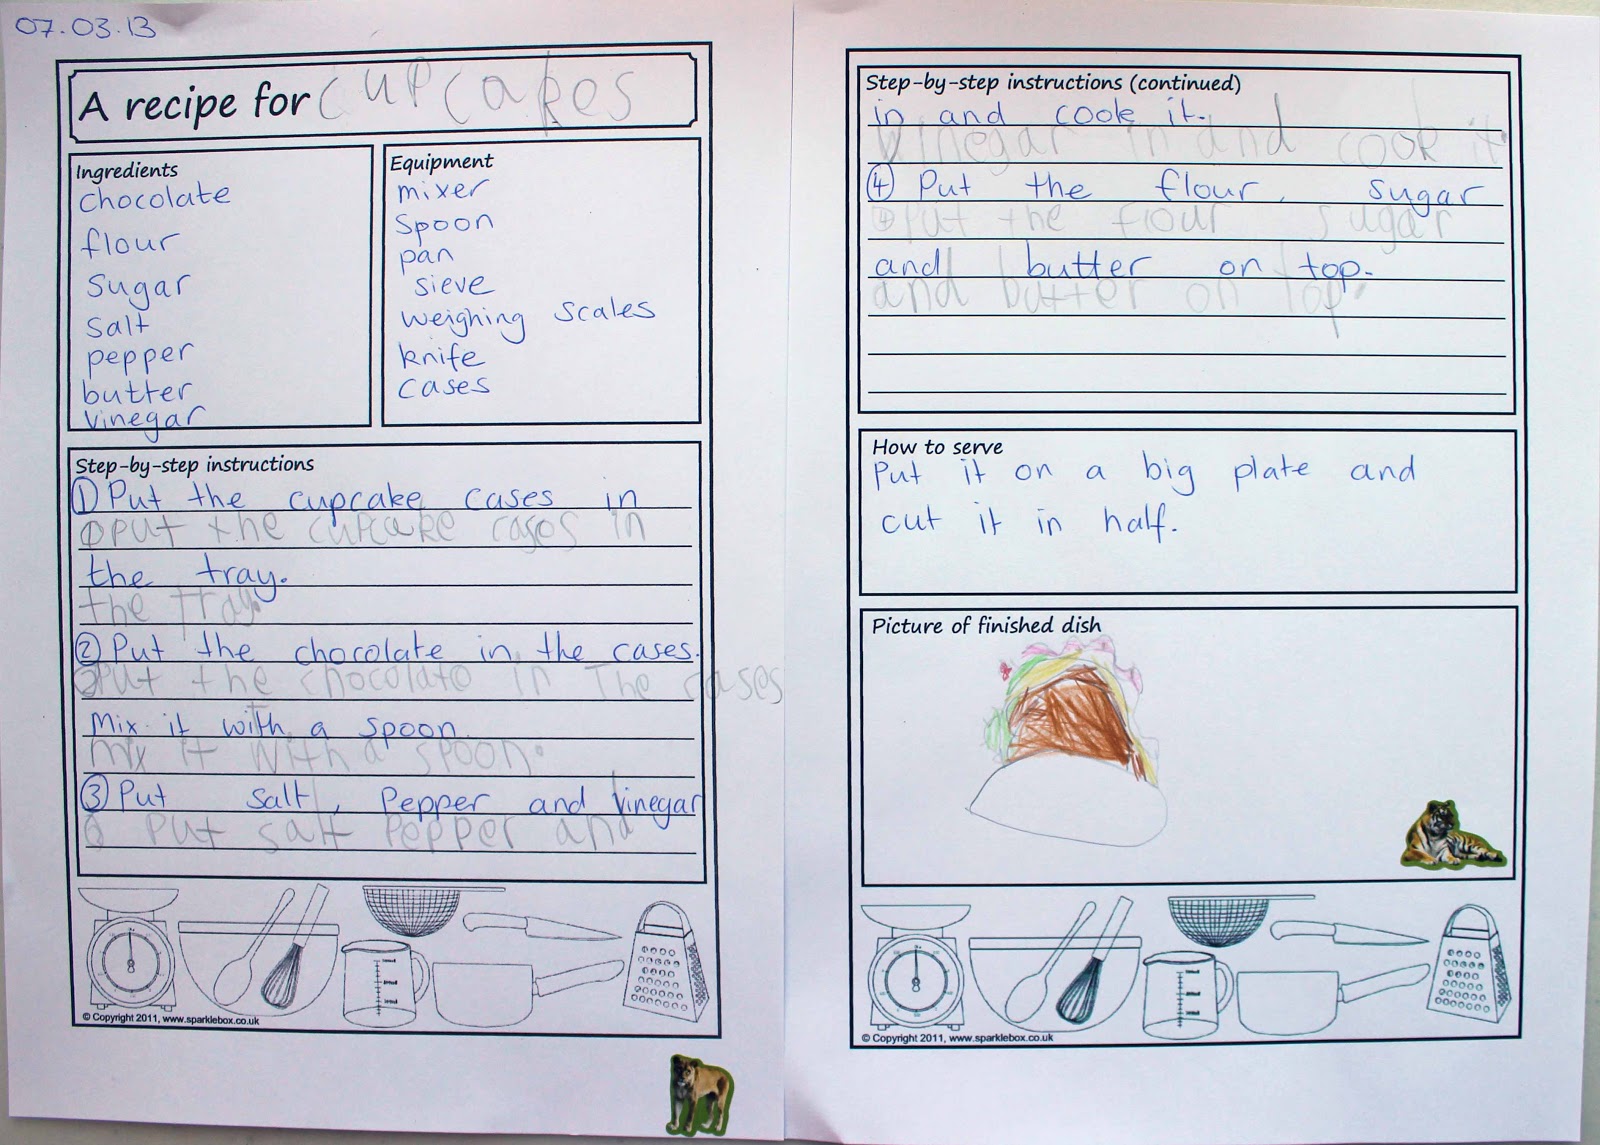 07.03.13
A recipe for cupcakes
Ingredients
chocolate
flour
sugar
salt
pepper
butter
vinegar
Equipment
mixer
spoon
pan
sieve
weighing scales
knife
cases
Step-by-step instructions
① Put the cupcake cases in
① put the cupcake cases in
the tray.
the tray.
② Put the chocolate in the cases.
② Put the chocolate in The cases
Mix it with a spoon.
mix it with a spoon.
③ Put salt, Pepper and Vinegar
③ Put salt Pepper and
© Copyright 2011, www.sparklebox.co.uk
Step-by-step instructions (continued)
in and cook it.
Vinegar in and cook it.
④ Put the flour, sugar
④ Put the flour sugar
and butter on top.
and butter on top.
How to serve
Put it on a big plate and
cut it in half.
Picture of finished dish
© Copyright 2011, www.sparklebox.co.uk